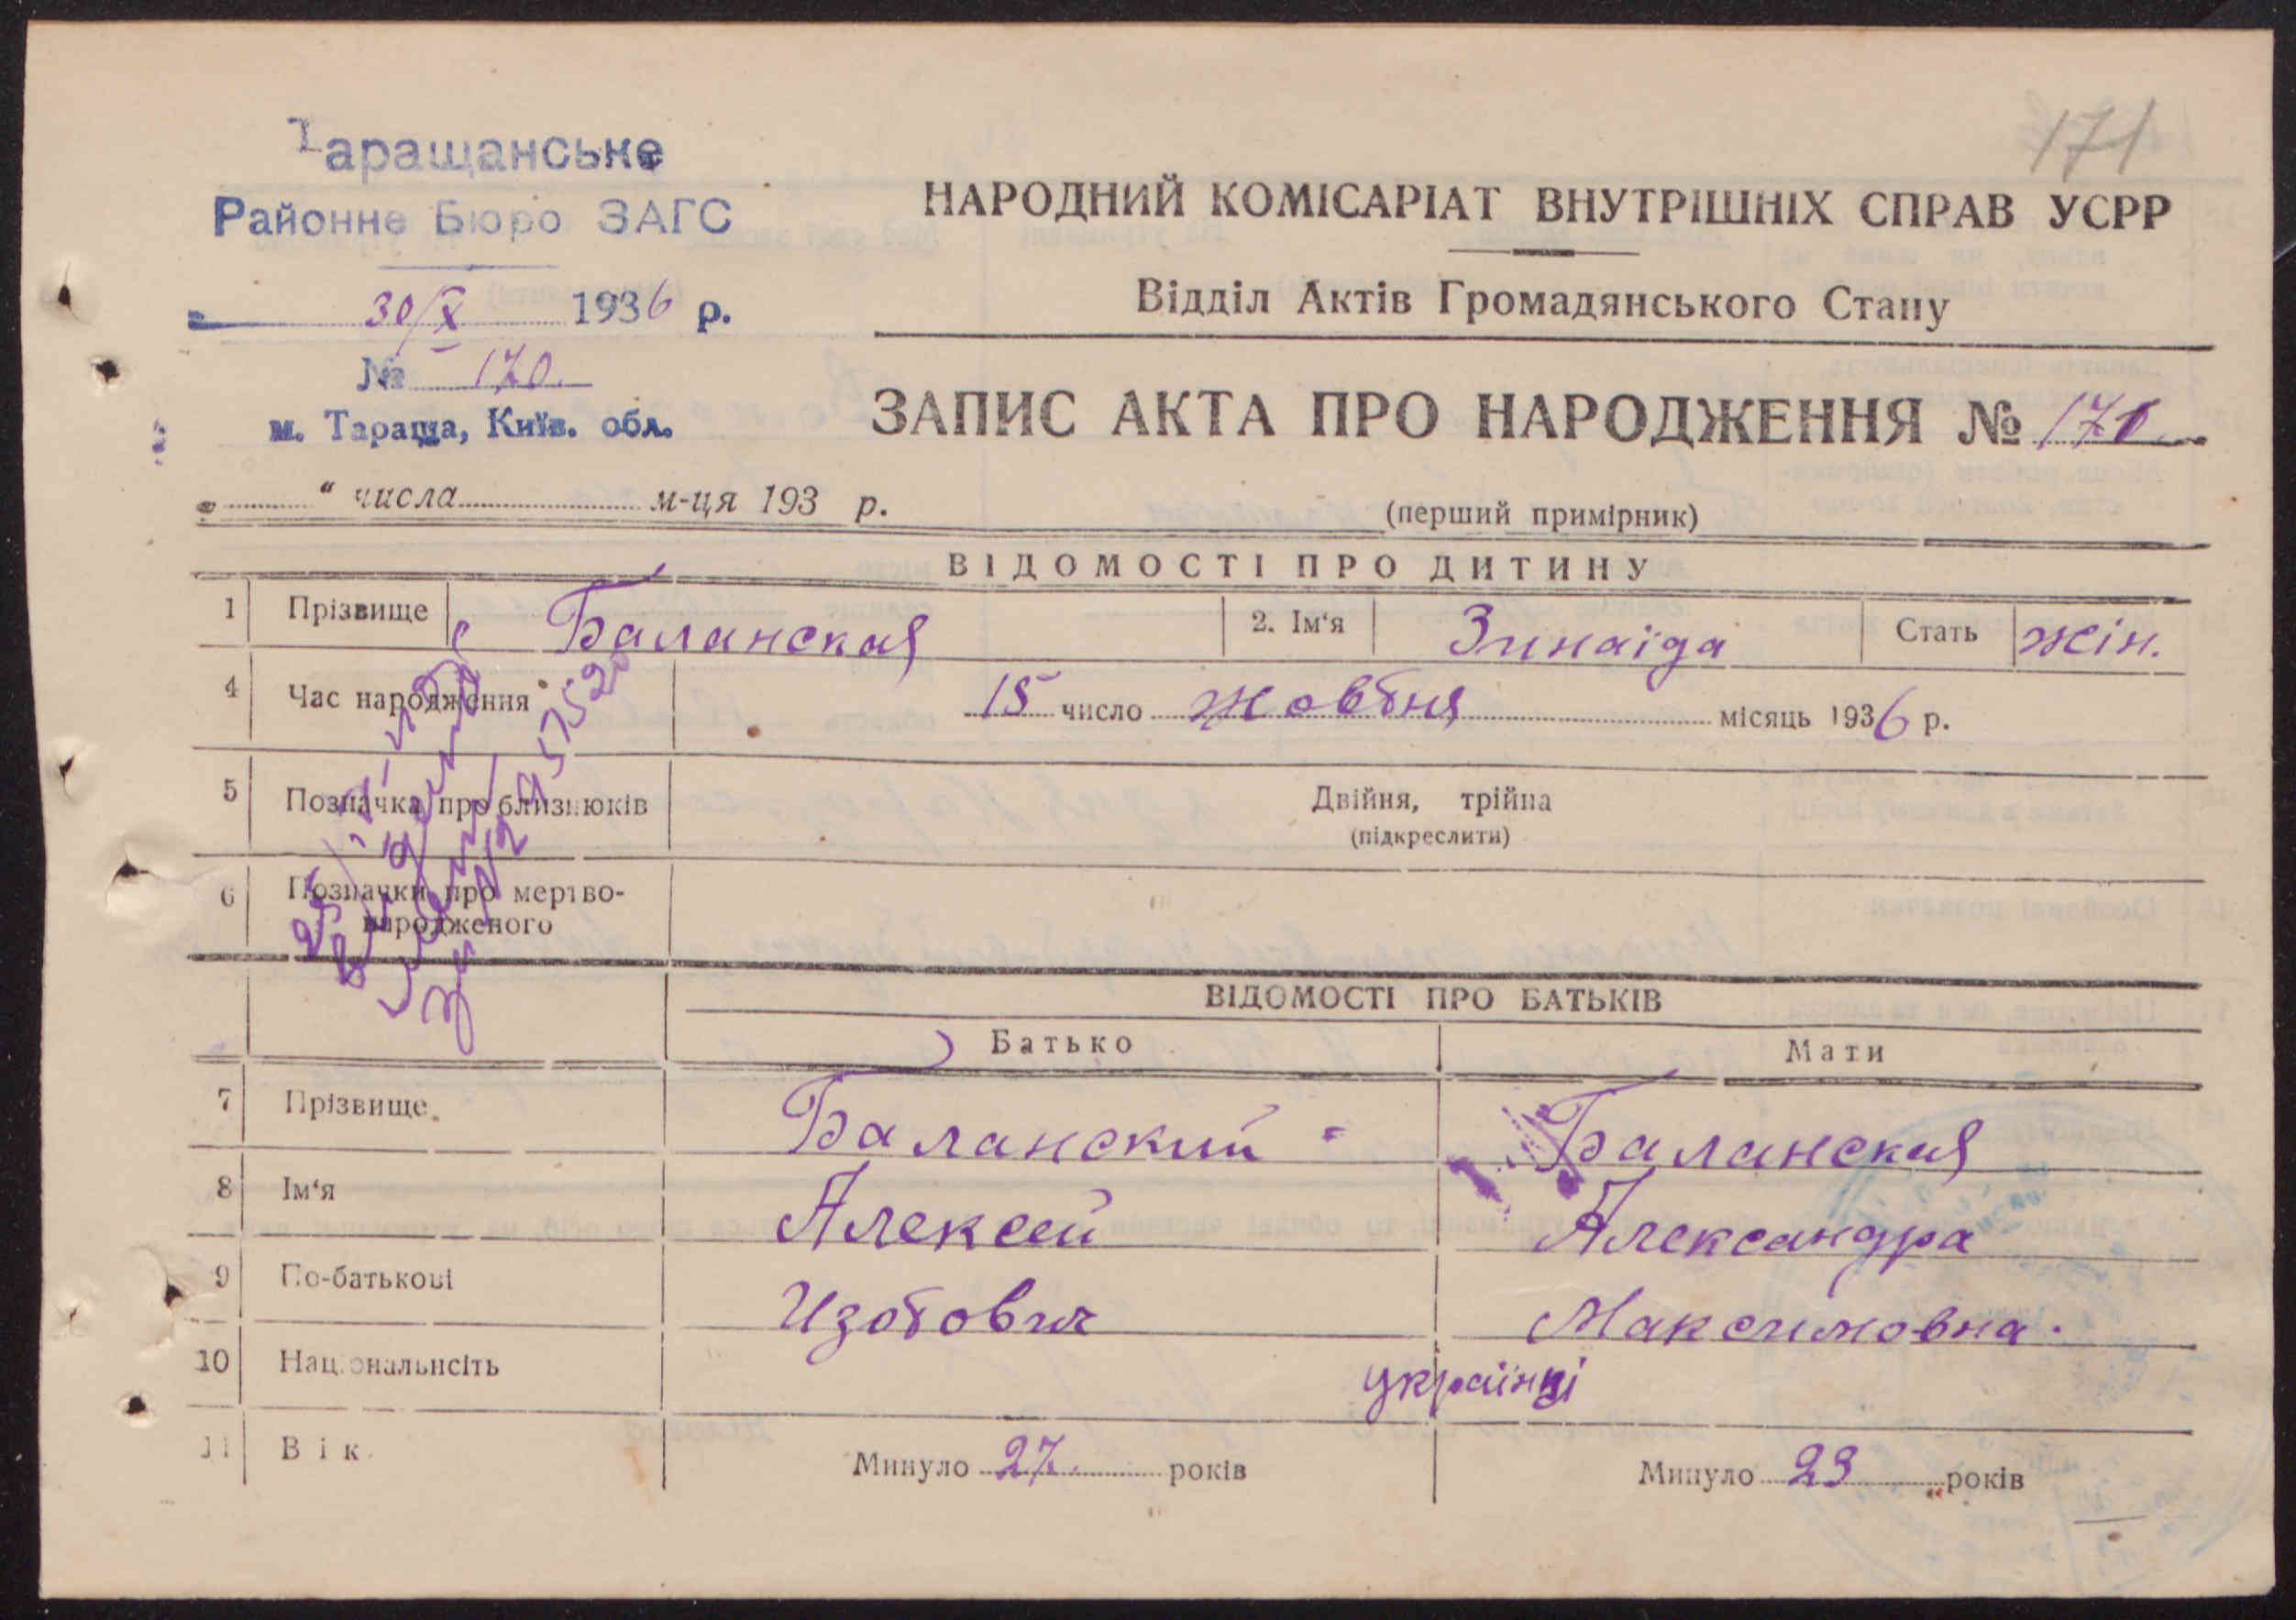 171
Таращанське
Районне Бюро ЗАГС
30/X 1936 р.
№ 170.
м. Тараща, Київ. обл.
НАРОДНИЙ КОМІСАРІАТ ВНУТРІШНІХ СПРАВ УСРР
Відділ Актів Громадянського Стану
ЗАПИС АКТА ПРО НАРОДЖЕННЯ № 170
„ “ числа м-ця 193 р.
(перший примірник)
ВІДОМОСТІ ПРО ДИТИНУ
1 Прізвище Баланская 2. Ім'я Зинаіда Стать жін.
4 Час народження 15 число жовтня місяць 1936 р.
5 Позначка про близнюків Двійня, трійна
(підкреслити)
6 Позначки про мертво-
народженого
№ 957520
ВІДОМОСТІ ПРО БАТЬКІВ
Батько Мати
7 Прізвище Баланский Баланская
8 Ім'я Алексей Александра
9 По-батькові Изотович Максимовна.
10 Національнсіть українці
11 Вік Минуло 27 років Минуло 23 років